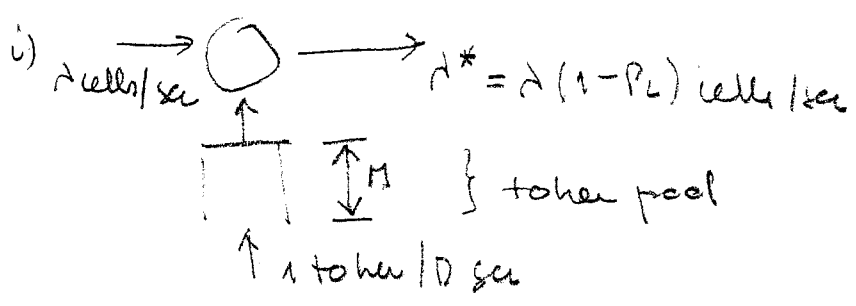 i) λ cells/sec λ* = λ(1-PL) cells/sec
M } token pool
1 token/D sec